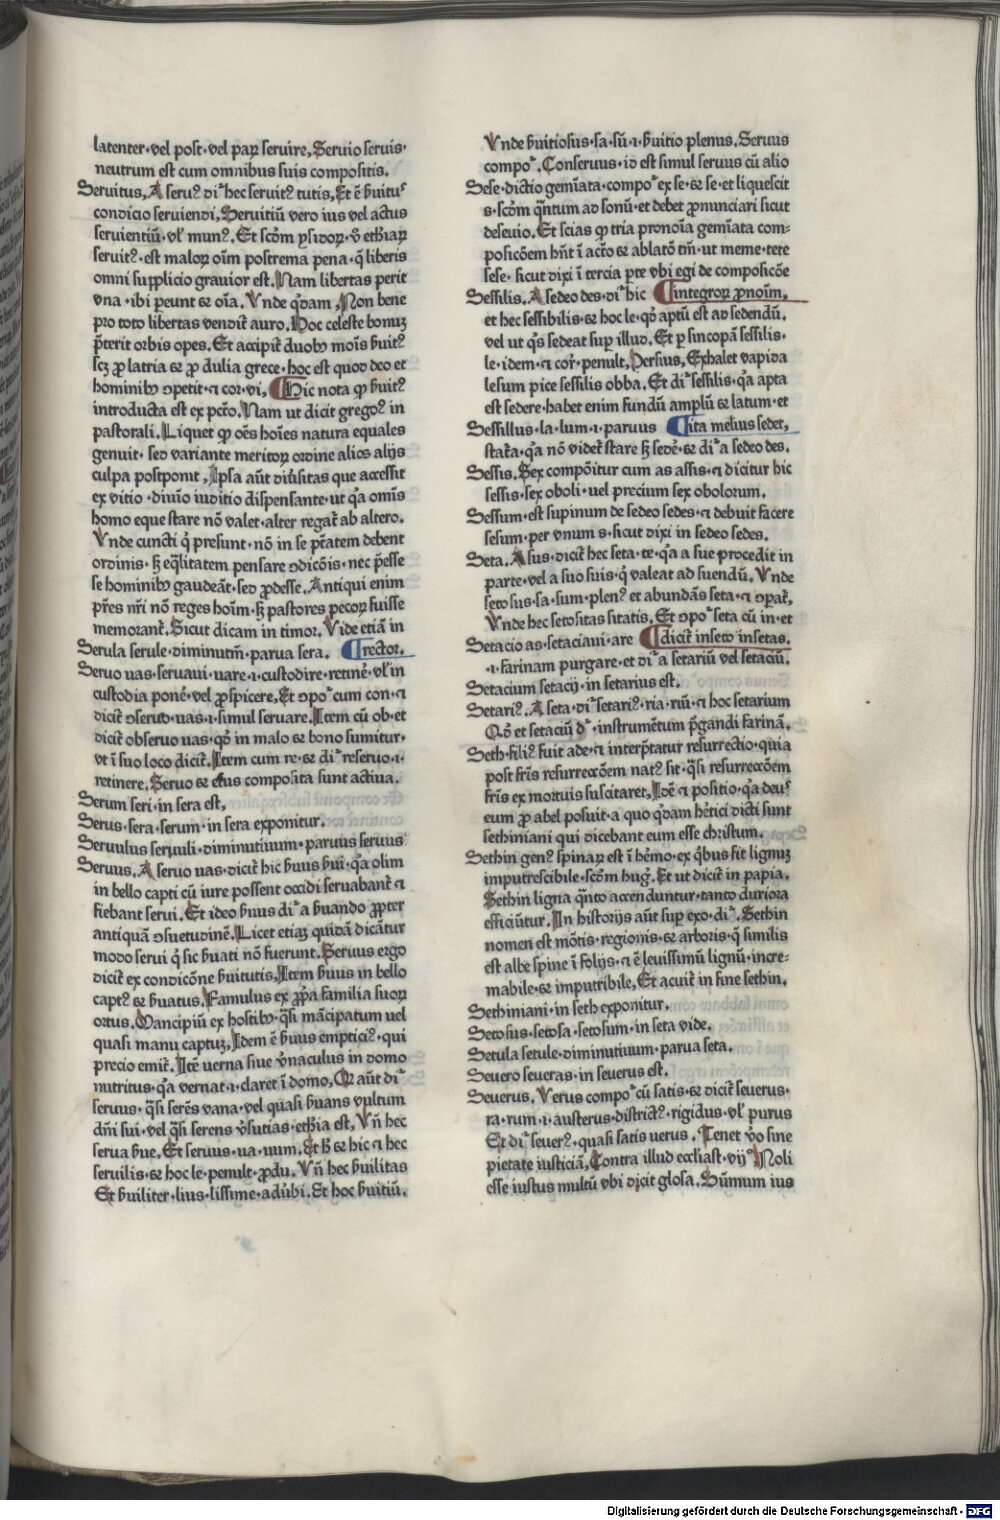 latenter·vel post·vel paꝝ seruire, Seruio seruis·
neutrum est cum omnibus suis compositis.
Seruitus, A seruꝰ dr̄ hec seruitꝰ tutis, Et ē ẜuitus
condicio seruiendi, Seruitiū vero ius vel actus
seruientiū·vl̓ munꝰ. Et scōm ysidoꝝ·v̄ ethiaꝝ
seruitꝰ·est maloꝝ oīm postrema pena·q̄ liberis
omni supplicio grauior est. Nam libertas perit
vna·ibi peunt ⁊ oīa. Vnde qͥdam, Non bene
pro toto libertas vendit̄ auro. Hoc celeste bonuꝫ
p̄terit orbis opes. Et accipit̄ duobꝫ moīs ẜuitꝰ
scꝫ ꝓ latria ⁊ ꝓ dulia grece·hoc est quod deo et
hominibꝫ ꝯpetit·⁊ cor·vi, ¶ Hic nota ꝙ ẜuitꝰ
introducta est ex pctō. Nam ut dicit gregoꝰ in
pastorali. Liquet ꝙ oēs hoīes natura equales
genuit·sed variante meritoꝝ ordine alios alijs
culpa postponit, Ipsa aūt diūsitas que accessit
ex vitio·diuīo iuditio dispensante·ut qͣ omīs
homo eque stare nō valet·alter regat̄ ab altero.
Vnde cuncti qͥ presunt·nō in se pt̄atem debent
ordinis·ẜ eq̄litatem pensare ꝯdicōis·nec p̄esse
se hominibꝫ gaudeāt·sed ꝓdesse. Antiqui enim
pr̄es nr̄i nō reges hoīm·ẜ pastores pecoꝝ fuisse
memorant̄. Sicut dicam in timor. Vide etiā in
Serula serule·diminutm̄·parua sera. ¶ rector.
Seruo uas·seruaui·uare·i·custodire·retinē·vl̓ in
custodia ponē·vel ꝓspicere, Et ꝯpoʳ cum con·⁊
dicit̄ ꝯseruo·uas·i·simul seruare. Item cū ob·et
dicit̄ obseruo uas·qꝺ̓ in malo ⁊ bono sumitur·
vt ī suo loco dicit̄. Item cum re·⁊ dr̄ reseruo·i·
retinere. Seruo ⁊ eius composita sunt actiua.
Serum seri·in sera est,
Serus·sera·serum·in sera exponitur.
Seruulus seruuli·diminutiuum·paruus seruus
Seruus. A seruo uas·dicit̄ hic ẜuus ẜui·qͣ olim
in bello capti cū iure possent occidi seruabant̄ ⁊
fiebant serui. Et ideo ẜuus dr̄ a ẜuando ꝓpter
antiquā ꝯsuetudinē. Licet etiaꝫ quidā dicātur
modo serui qͥ sic ẜuati nō fuerunt. Seruus ergo
dicit̄ ex condicōne ẜuitutis. Item ẜuus in bello
captꝰ ⁊ ẜuatus. Famulus ex ꝓpͥa familia suoꝝ
ortus. Mancipiū ex hostibꝫ·qͣsi mācipatum uel
quasi manu captuꝫ. Idem ē ẜuus empticiꝰ·qui
precio emit̄. Itē uerna siue v̓naculus in domo
nutritus·qͣ vernat·i·claret ī domo. Qꝫ aūt dr̄
seruus·qͣsi serēs vana·vel quasi ẜuans vultum
dn̄i sui·vel qͣsi serens v̓sutias·ethīa est. Vn̄ hec
serua ẜue. Et seruus·ua·uum. Et hͦ ⁊ hic ⁊ hec
seruilis·⁊ hoc le·penult·ꝓdu. Vn̄ hec ẜuilitas
Et ẜuiliter·lius·lissime·adu̓bi. Et hoc ẜuitiū.
Vnde ẜuitiosus·sa·sū·i·ẜuitio plenus. Seruus
compoʳ. Conseruus·id est simul seruus cū alio
Sese·dictio gemīata·compoʳ ex se·⁊ se·et liquescit
s·scōm qͣntum ad sonū·et debet ꝓnunciari sicut
deseuio. Et scias ꝙ tria pronoīa gemīata com⸗
posicōem hn̄t ī actō ⁊ ablatō tm̄·ut meme·tete
sese·sicut dixi ī tercia pte vbi egi de composicōe
Sessilis. A sedeo des·dr̄ hic ¶ integroꝝ ꝓnoīm.
et hec sessibilis·⁊ hoc le·qꝺ̓ aptū est ad sedendū.
vel ut qͥs sedeat suꝑ illud. Et ꝑ sincopā sessilis·
le·idem·⁊ cor̄·penult, Persius, Exhalet vapida
lesum pice sessilis obba. Et dr̄ sessilis·qͣ apta
est sedere·habet enim fundū amplū ⁊ latum·et
Sessillus·la·lum·i·paruus ¶ ita melius sedet,
stat̄a·qͣ nō videt̄ stare ẜ sedē·⁊ dr̄ a sedeo des.
Sessis. Sex compōitur cum as assis·⁊ dicitur hic
sessis·sex oboli·uel precium sex obolorum.
Sessum·est supinum de sedeo sedes·⁊ debuit facere
sesum·per vnum s·sicut dixi in sedeo sedes.
Seta. A sus·dicit̄ hec seta·te·qͣ a sue procedit in
parte·vel a suo suis·qͥ valeat ad suendū. Vnde
setosus·sa·sum·plenꝰ et abundās seta·⁊ ꝯꝑat̄,
Vnde hec setositas sitatis. Et ꝯpoʳ seta cū in·et
Setacio as·setaciaui·are ¶ dicit̄ inseto insetas.
·i·farinam purgare·et dr̄ a setariū vel setaciū.
Setacium setacij·in setarius est.
Setariꝰ. A seta·dr̄ setariꝰ·ria·riū·⁊ hoc setarium
Qꝺ̓ et setaciū dr̄·instrumētum p̄gandi farinā.
Seth·filiꝰ fuit ade·⁊ interp̄tatur resurrectio·quia
post fr̄is resurreccōem natꝰ sit·qͣsi resurreccōem
fr̄is ex mortuis suscitaret, Idē ⁊ positio·qͣ deus
eum ꝓ abel posuit·a quo qͥdam h̓etici dicti sunt
sethiniani qui dicebant eum esse christum.
Sethin genꝰ spinaꝝ est ī h̓emo·ex qͥbus fit lignuꝫ
imputrescibile·scōm hug̓. Et ut dicit in papia.
Sethin ligna qͣnto accenduntur·tanto duriora
efficiūtur. In historijs aūt suꝑ exo·dr̄. Sethin
nomen est mōtis·regionis·⁊ arboris·qͥ similis
est albe spine ī folijs·⁊ ē leuissimū lignū·incre⸗
mabile·⁊ imputribile, Et acuit̄ in fine sethin.
Sethiniani·in seth exponitur.
Setosus·setosa·setosum·in seta vide.
Setula setule·diminutiuum·parua seta.
Seuero seueras·in seuerus est.
Seuerus. Verus compoʳ cū satis·⁊ dicit̄ seuerus·
ra·rum·i·austerus·districtꝰ·rigidus·vl̓ purus
Et dr̄ seuerꝰ·quasi satis uerus. Tenet v̓o sine
pietate iusticiā, Contra illud eccliast·vij Noli
esse iustus multū vbi dicit glosa. Sūmum ius
Digitalisierung gefördert durch die Deutsche Forschungsgemeinschaft · DFG